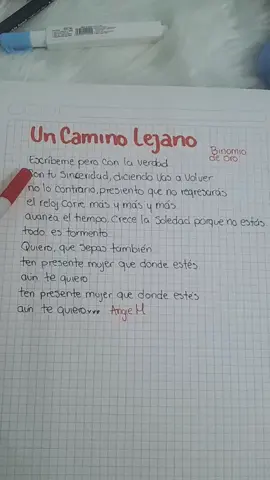 Un Camino Lejano
Binomio
de oro
Escríbeme pero con la verdad
con tu sinceridad, diciendo vas a volver
no lo contrario, presiento que no regresarás
el reloj corre más y más y más
avanza el tiempo. Crece la soledad porque no estás
todo es tormento
Quiero, que sepas también
ten presente mujer que donde estés
aún te quiero
ten presente mujer que donde estés
aún te quiero... Ange M